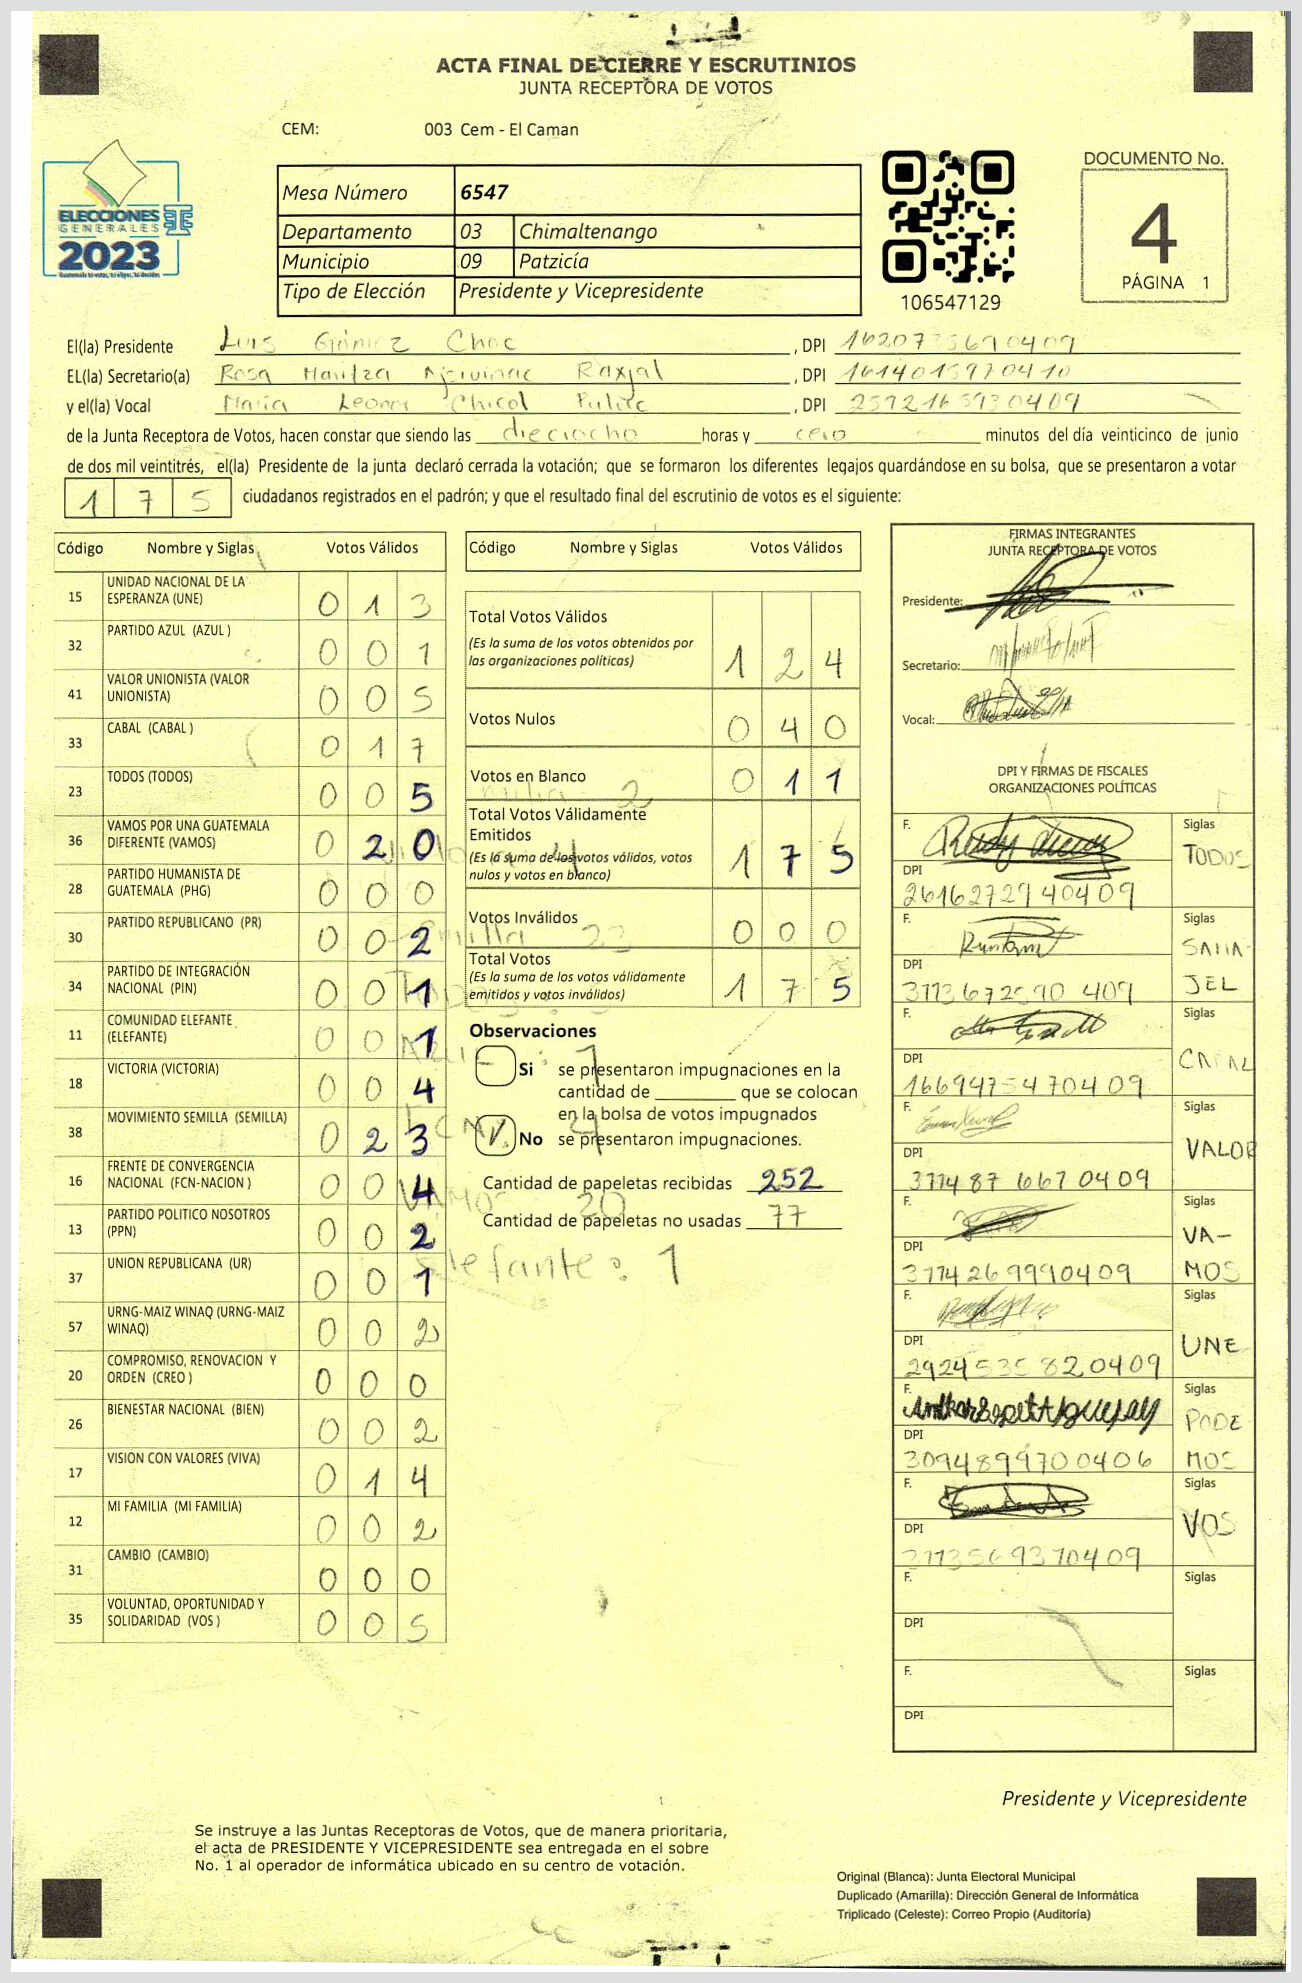 ACTA FINAL DE CIERRE Y ESCRUTINIOS
JUNTA RECEPTORA DE VOTOS
CEM: 003 Cem - El Caman
ELECCIONES
GENERALES
2023
Mesa Número 6547
Departamento 03 Chimaltenango
Municipio 09 Patzicía
Tipo de Elección Presidente y Vicepresidente
106547129
DOCUMENTO No.
4
PÁGINA 1
El(la) Presidente Luis Gómez Choc , DPI
EL(la) Secretario(a) Rosa Maritza Raxjal , DPI
y el(la) Vocal María Leonor Chicol , DPI
de la Junta Receptora de Votos, hacen constar que siendo las dieciocho horas y cero minutos del día veinticinco de junio
de dos mil veintitrés, el(la) Presidente de la junta declaró cerrada la votación; que se formaron los diferentes legajos quardándose en su bolsa, que se presentaron a votar
175 ciudadanos registrados en el padrón; y que el resultado final del escrutinio de votos es el siguiente:
Código Nombre y Siglas Votos Válidos
15 UNIDAD NACIONAL DE LA ESPERANZA (UNE) 0 1 3
32 PARTIDO AZUL (AZUL ) 0 0 1
41 VALOR UNIONISTA (VALOR UNIONISTA) 0 0 5
33 CABAL (CABAL ) 0 1 7
23 TODOS (TODOS) 0 0 5
36 VAMOS POR UNA GUATEMALA DIFERENTE (VAMOS) 0 2 0
28 PARTIDO HUMANISTA DE GUATEMALA (PHG) 0 0 0
30 PARTIDO REPUBLICANO (PR) 0 0 2
34 PARTIDO DE INTEGRACIÓN NACIONAL (PIN) 0 0 1
11 COMUNIDAD ELEFANTE (ELEFANTE) 0 0 1
18 VICTORIA (VICTORIA) 0 0 4
38 MOVIMIENTO SEMILLA (SEMILLA) 0 2 3
16 FRENTE DE CONVERGENCIA NACIONAL (FCN-NACION ) 0 0 4
13 PARTIDO POLITICO NOSOTROS (PPN) 0 0 2
37 UNION REPUBLICANA (UR) 0 0 1
57 URNG-MAIZ WINAQ (URNG-MAIZ WINAQ) 0 0 2
20 COMPROMISO, RENOVACION Y ORDEN (CREO ) 0 0 0
26 BIENESTAR NACIONAL (BIEN) 0 0 2
17 VISION CON VALORES (VIVA) 0 1 4
12 MI FAMILIA (MI FAMILIA) 0 0 2
31 CAMBIO (CAMBIO) 0 0 0
35 VOLUNTAD, OPORTUNIDAD Y SOLIDARIDAD (VOS ) 0 0 5
Código Nombre y Siglas Votos Válidos
Total Votos Válidos 1 2 4
(Es la suma de los votos obtenidos por
las organizaciones políticas)
Votos Nulos 0 4 0
Votos en Blanco 0 1 1
Total Votos Válidamente
Emitidos 1 7 5
(Es la suma de los votos válidos, votos
nulos y votos en blanco)
Votos Inválidos 0 0 0
Total Votos 1 7 5
(Es la suma de los votos válidamente
emitidos y votos inválidos)
Observaciones
Si se presentaron impugnaciones en la
cantidad de ________ que se colocan
en la bolsa de votos impugnados
No se presentaron impugnaciones.
Cantidad de papeletas recibidas 252
Cantidad de papeletas no usadas 77
Elefante: 1
FIRMAS INTEGRANTES
JUNTA RECEPTORA DE VOTOS
Presidente:
Secretario:
Vocal:
DPI Y FIRMAS DE FISCALES
ORGANIZACIONES POLÍTICAS
F. Siglas
TODOS
DPI
2616272940409
F. Siglas
DPI
F. Siglas
CABAL
DPI
1669475470409
F. Siglas
VALOR
DPI
3774876670409
F. Siglas
VA-
MOS
DPI
3774269990409
F. Siglas
UNE
DPI
2924535820409
F. Siglas
PODE
MOS
DPI
3094899700406
F. Siglas
VOS
DPI
F. Siglas
DPI
F. Siglas
DPI
Presidente y Vicepresidente
Se instruye a las Juntas Receptoras de Votos, que de manera prioritaria,
el acta de PRESIDENTE Y VICEPRESIDENTE sea entregada en el sobre
No. 1 al operador de informática ubicado en su centro de votación.
Original (Blanca): Junta Electoral Municipal
Duplicado (Amarilla): Dirección General de Informática
Triplicado (Celeste): Correo Propio (Auditoría)